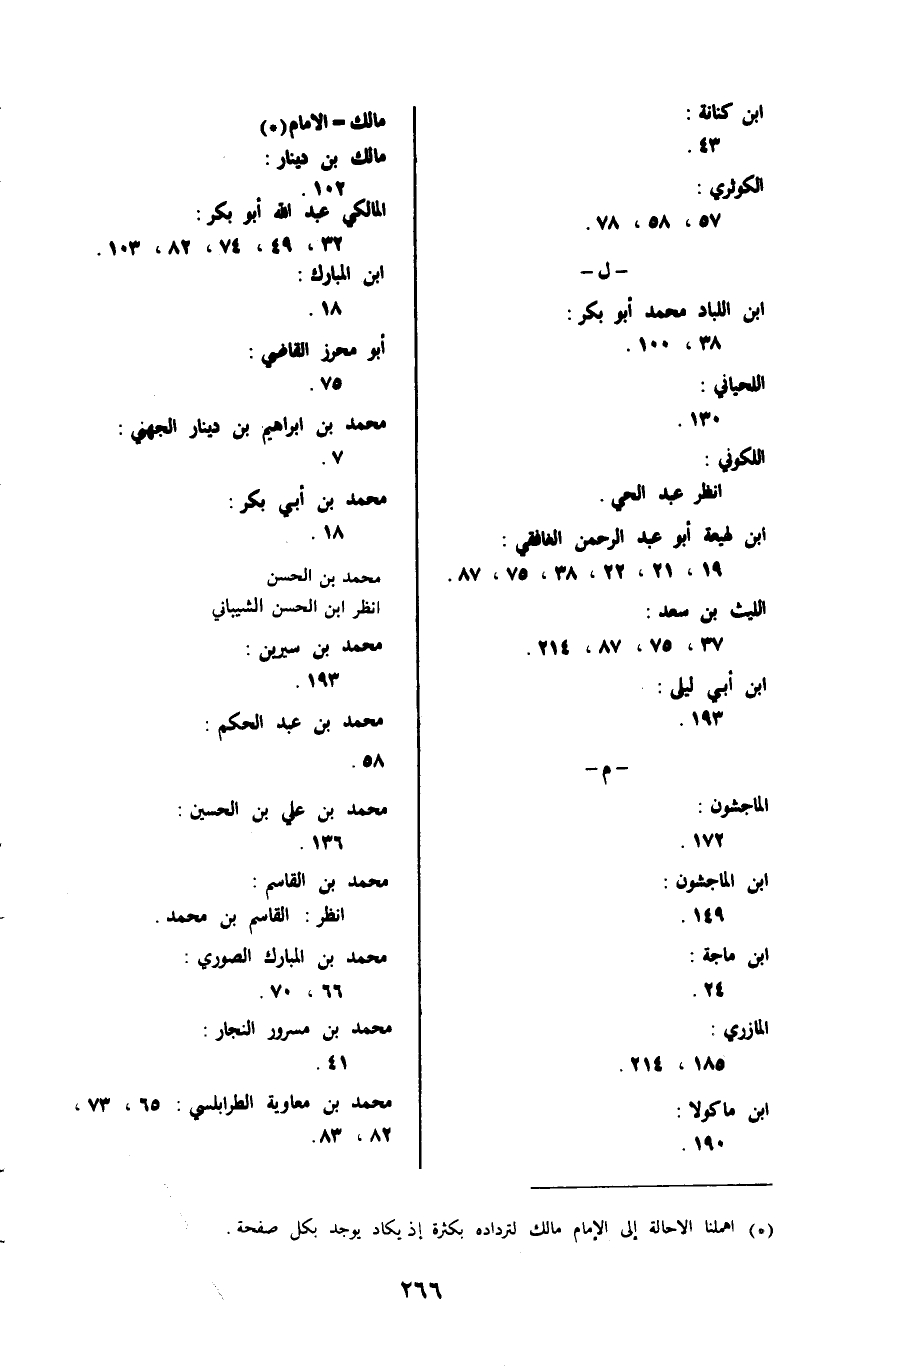 ابن كنانة :
٤٣ .
الكوثري :
٥٧ ، ٥٨ ، ٧٨ .
- ل -
ابن اللباد محمد أبو بكر :
٣٨ ، ١٠٠ .
اللحياني :
١٣٠ .
اللكوني :
انظر عبد الحي .
ابن لهيعة أبو عبد الرحمن الغافقي :
١٩ ، ٢١ ، ٢٢ ، ٣٨ ، ٧٥ ، ٨٧ .
الليث بن سعد :
٣٧ ، ٧٥ ، ٨٧ ، ٢١٤ .
ابن أبي ليلى :
١٩٣ .
- م -
الماجشون :
١٧٢ .
ابن الماجشون :
١٤٩ .
ابن ماجة :
٢٤ .
المازري :
١٨٥ ، ٢١٤ .
ابن ماكولا :
١٩٠ .
مالك - الامام (*)
مالك بن دينار :
١٠٢ .
المالكي عبد الله أبو بكر :
٣٢ ، ٤٩ ، ٧٤ ، ٨٢ ، ١٠٣ .
ابن المبارك :
١٨ .
أبو محرز القاضي :
٧٥ .
محمد بن ابراهيم بن دينار الجهني :
٧ .
محمد بن أبي بكر :
١٨ .
محمد بن الحسن
انظر ابن الحسن الشيباني
محمد بن سيرين :
١٩٣ .
محمد بن عبد الحكم :
٥٨ .
محمد بن علي بن الحسين :
١٣٦ .
محمد بن القاسم :
انظر : القاسم بن محمد .
محمد بن المبارك الصوري :
٦٦ ، ٧٠ .
محمد بن مسرور النجار :
٤١ .
محمد بن معاوية الطرابلسي : ٦٥ ، ٧٣ ،
٨٢ ، ٨٣ .
(*) اهملنا الاحالة إلى الإمام مالك لترداده بكثرة إذ يكاد يوجد بكل صفحة .
٢٦٦